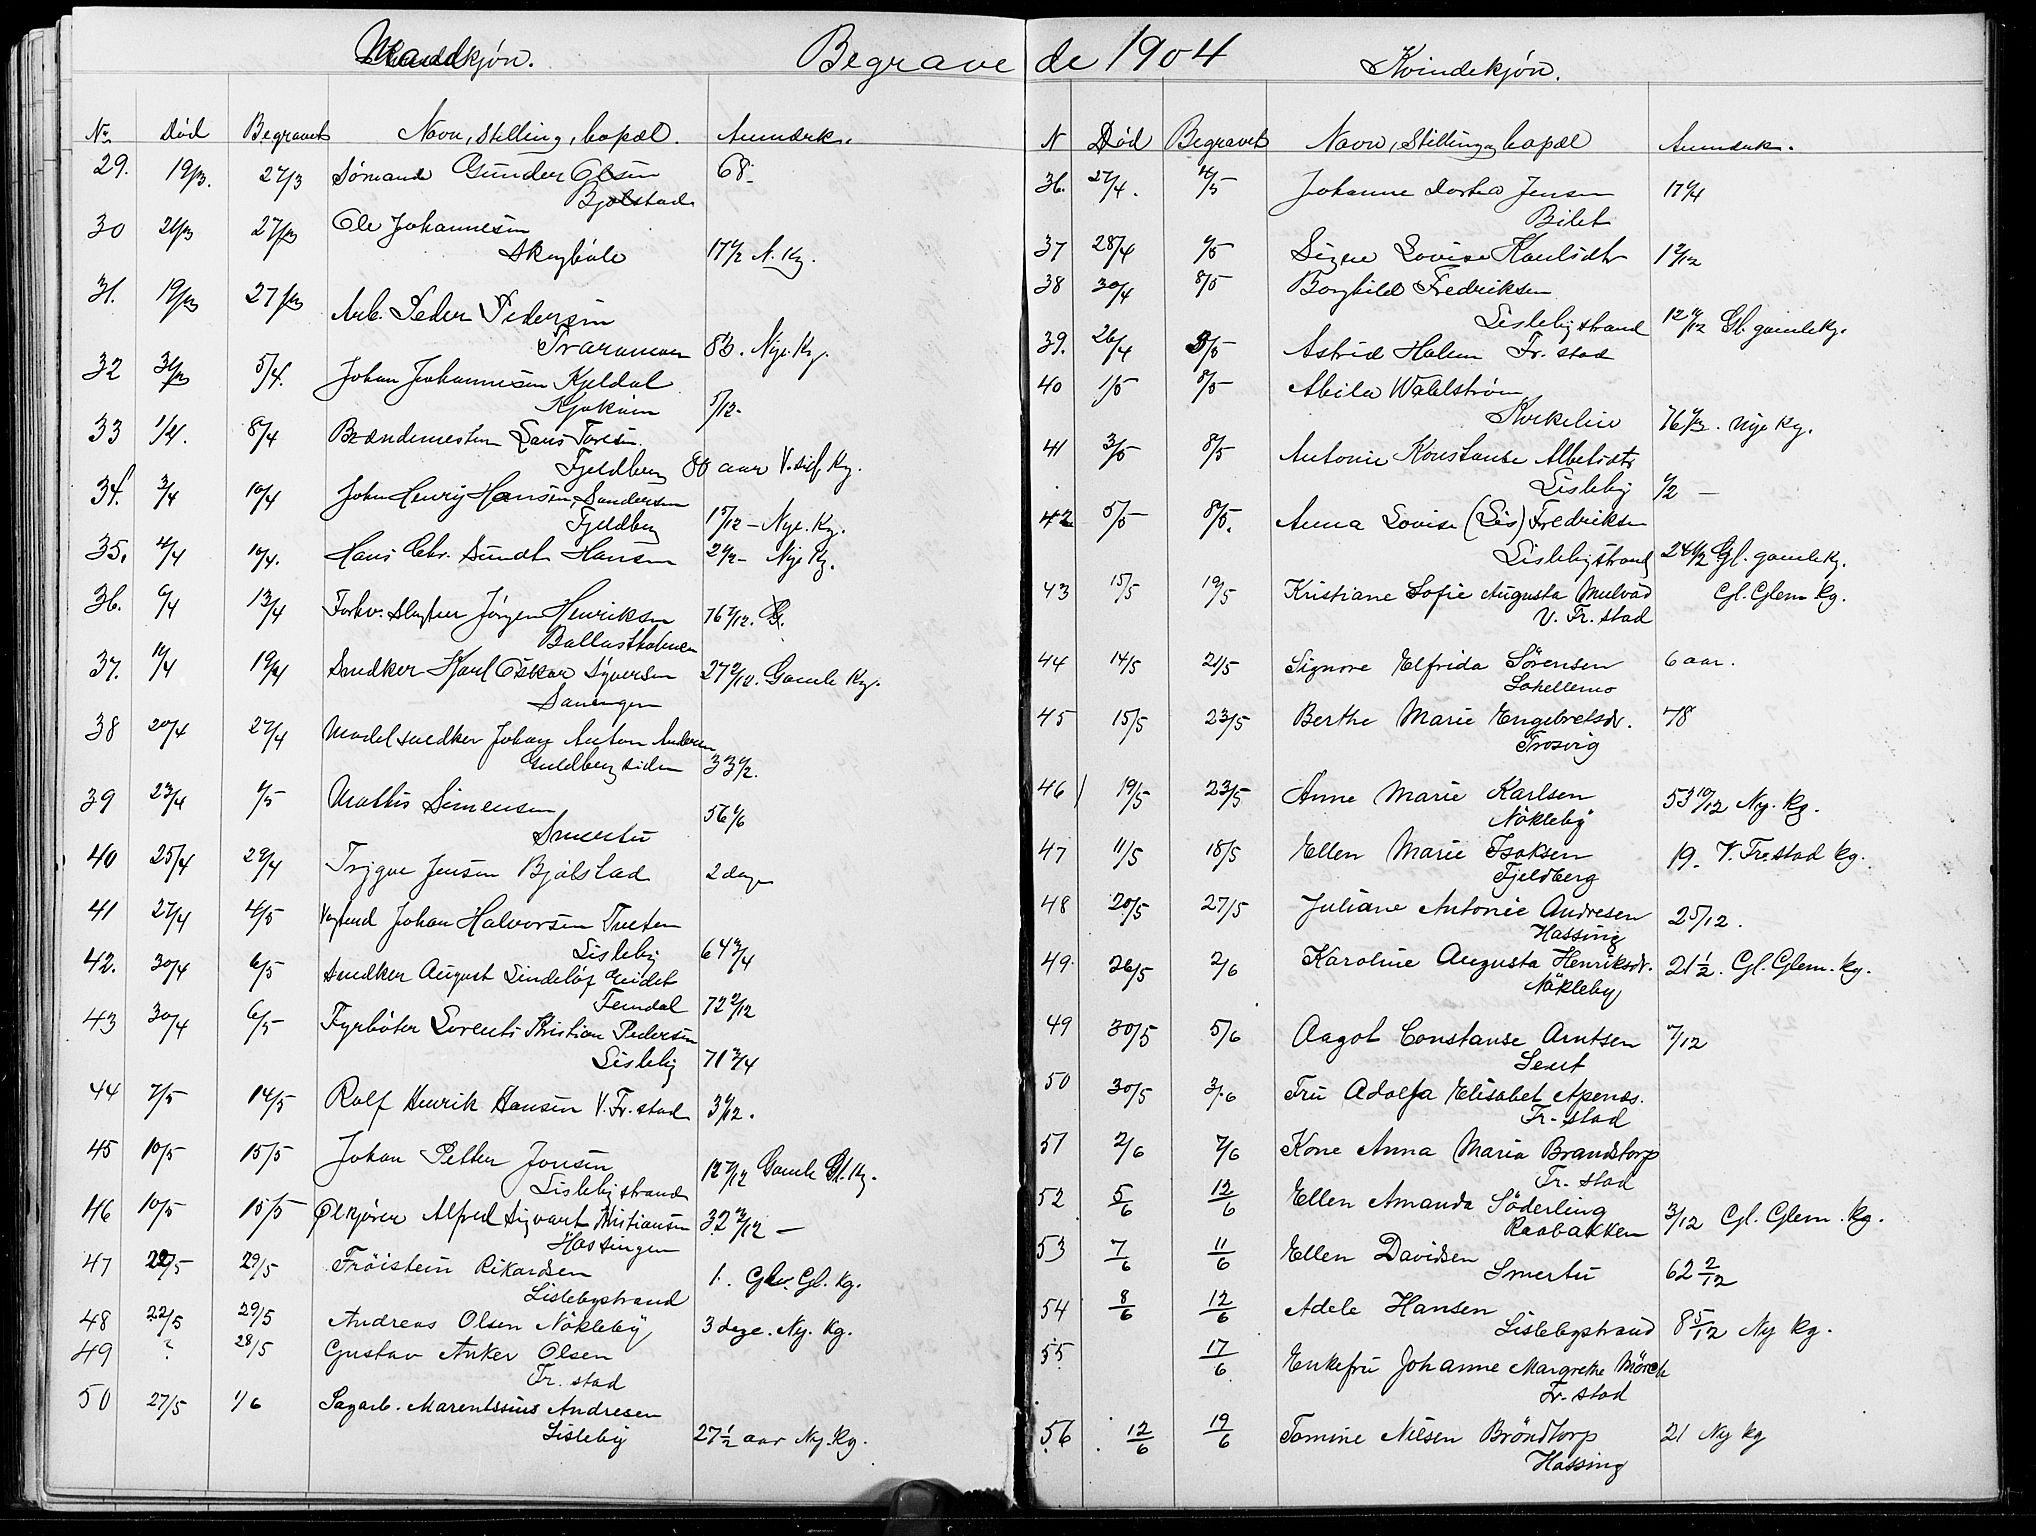 Mandkjøn.
Begravede 1904
Kvindekjøn.
No Død Begravet Navn, Stilling, bopæl. Anmærk.
29. 19/3. 27/3 Sømand Gunder Olsen 68
Bjølstad
30 21/3 27/3 Ole Johannesen
17 1/2 N. Kg.
31. 19/3 27/3 Arb. Peder Pedersen
Traraveien 83. Nye. Kg.
32 31/3 5/4. Johan Johannesen Kjeldal
5/12.
33 1/4. 8/4 Brændemester Lars Toresen
Fjeldberg 80 aar V. sif. Kg.
34. 3/4 10/4 John Henry Hansen Sandersen
Fjeldberg 1 5/12 – Nye. Kg.
35. 4/4 10/4. Hans Chr. Sundt Hansen 2 1/2 – Nye Kg.
36. 6/4 13/4 Forhv. Jørgen Henriksen 76
Ballastholmen
37. 19/4 Snedker Karl Oskar Syversen 27 Gamle Kg.
38 20/4 27/4 Modelsnedker Johan Anton Andersen
Guldbergsiden 33 1/2.
39 23/4 1/5 Mathis Simensen
Smertu 56
40 25/4 29/4 Trygve Jensen Bjølstad 2 dage
41 27/4 4/5 Johan Halvorsen Tveten
Lisleby 64 3/4
42. 30/4 6/5 Snedker August Lindeløf
Femdal 72 2/12
43 30/4 6/5 Fyrbøter Lorents Kristian Pedersen
Lisleby 71 3/4
44 7/5 14/5 Rolf Henrik Hansen V. Fr. stad 3
45 10/5 15/5 Johan Petter Jonsen
Lislebystrand Gamle Gl. Kg.
46 10/5 15/5 Ølkjører Alfred Sigvart Kristiansen 32 –
Hassingen
47 22/5 29/5 Fröistein Rikardsen
Lislebystrand 1. Gl. Kg.
48 22/5 29/5 Andreas Olsen Nökleby 3 dage. Ny. Kg.
49 ? 28/5 Gustav Anker Olsen
Fr. stad
50 27/5 1/6 Sagarb. Marentssius Andresen
Lisleby 27 1/2 aar Ny. Kg.
N Død Begravet Navn, Stilling bopæl Anmærk.
36. 27/4. Johanne Dorthea Jensen 17
Bilet
37 28/4 Signe Lovise 1
38 30/4 8/5 Borghild Fredriksen
Lislebystrand 12 Gl. gamle kg.
39. 26/4 Astrid Holm Fr. stad
40 1/5 8/5 Wahlström
76 1/2. nye kg.
41 3/5 8/5 Antonie Konstanse
Lisleby 1/2 –
42 5/5 8/5. Anna Lovise (Lis) Fredriksen
Lislebystrand 24 1/2 Gl. gamle kg.
43 15/5 19/5 Kristiane Sofie Augusta Mulvad Gl. Glem kg.
V. Fr. stad
44 14/5 21/5 Signore Elfrida Sörensen 6 aar.
45 15/5 23/5 Berthe Marie Engebretsdr. 78
Trosvig
46 19/5 23/5 Anne Marie Karlsen
Nökleby 53 10/12 Ny. kg.
47 11/5 18/5 Ellen Marie Isaksen 19. V. Fre. stad kg.
Fjeldberg
48 20/5 27/5 Juliane Antonie Andresen 25/12.
Hassing
49. 26/5 2/6 Karoline Augusta Henriksdr. 21 1/2. Gl. Glem. kg.
Nökleby
49 30/5 5/6 Aagot Constanse Arntsen 7/12
50 30/5 3/6 Fru Adolfa Elisabet Apenæs.
Fr. stad
51 2/6 7/6 Kone Anna Maria Brandstorp
Fr. stad
52 5/6 12/6 Ellen Amanda Söderling
Raabakken 3/12 Gl. Glem. kg.
53 7/6 11/6 Ellen Davidsen
Smertu 62 2/12
54 8/6 12/6 Adele Hansen
Lislebystrand 8 5/12 Ny kg.
55 17/6 Enkefru Johanne Margrethe Mörch
Fr. stad
56 12/6 19/6 Tomine Nilsen Bröndtorp 21 Ny kg
Hassing